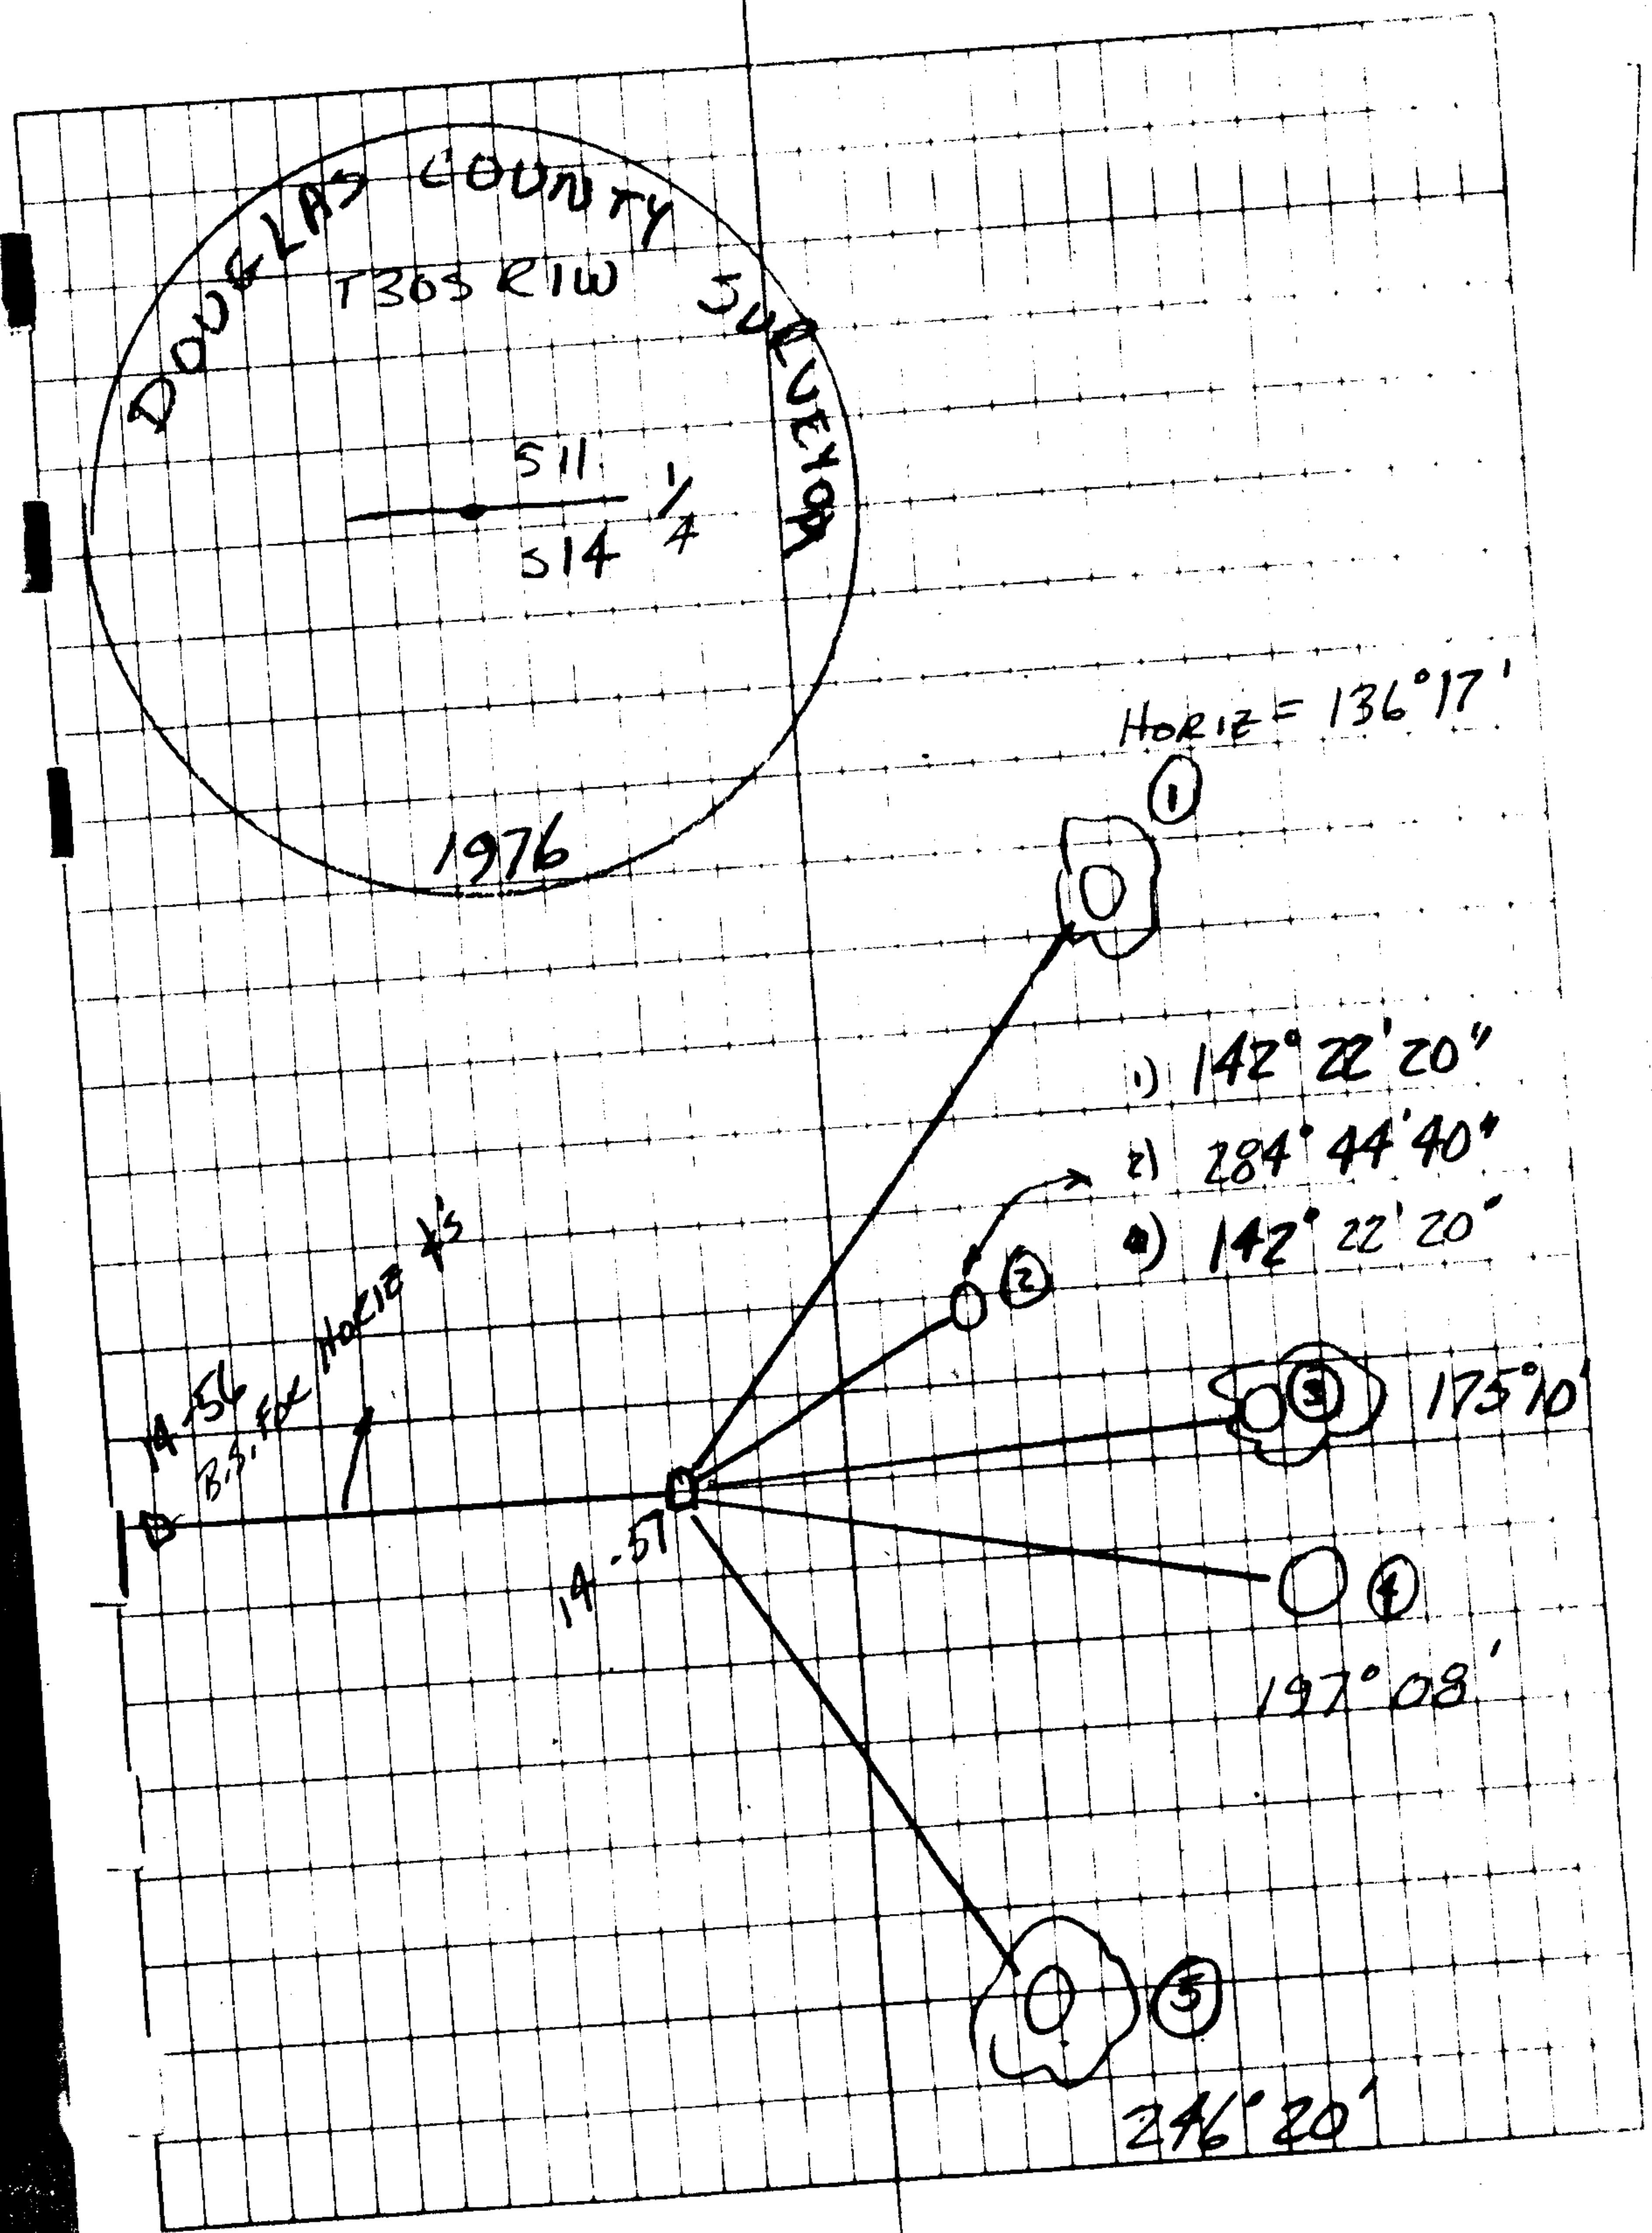 DOUGLAS COUNTY SURVEYOR
T30S R1W
S11
S14
1/4
1976
HORIZ = 136°17'
1
1) 142° 22' 20"
2) 284° 44' 40"
142° 22' 20"
2
14-56
B.S. FOR HORIZ ∡'s
3
175°10'
14-57
4
197° 08'
5
246° 20'